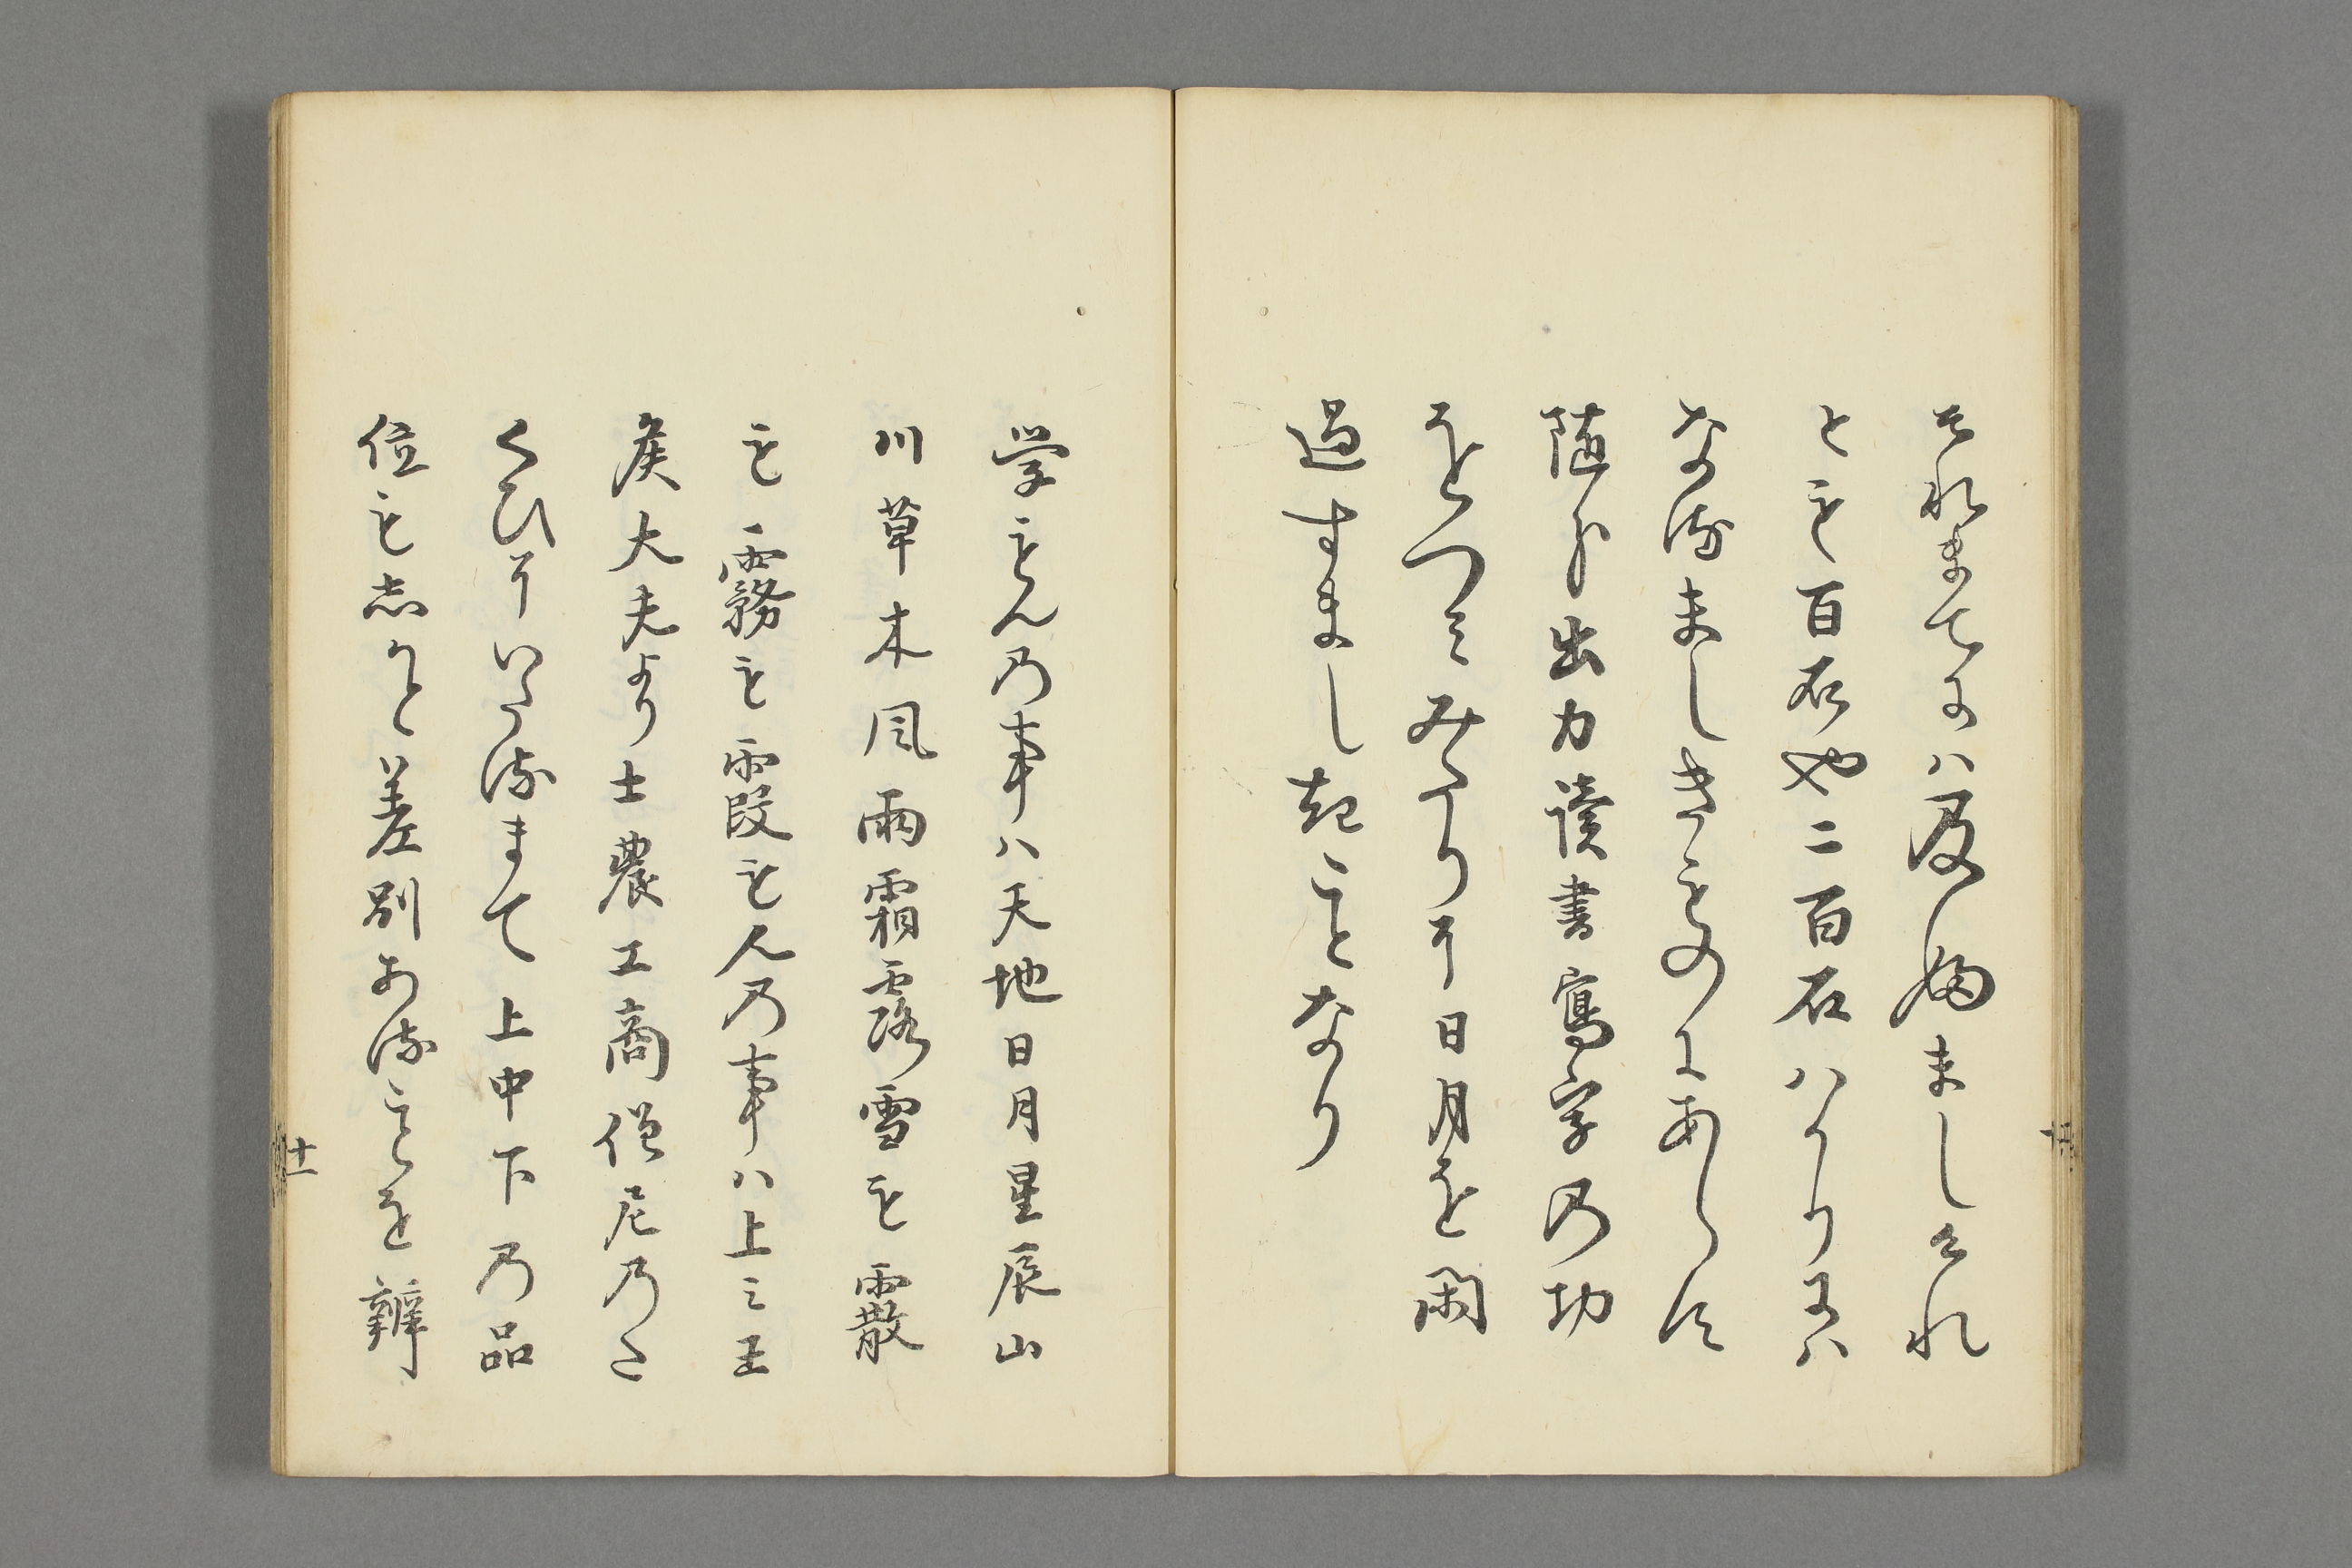 それまてには及ふましけれ
とも百石や二百石ハかりにハ
なるましきものにあらす
随分出力読書寫字乃功
をつミみたりに日月を閑
過すましきことなり
学もん乃事ハ天地日月星辰山
川草木風雨霜露雪も霰
も霧も霞もん乃事ハ上ミ王
侯大夫より士農工商僧尼乃た
くひにいたるまて上中下乃品
位も志かと差別あることを辨
十一